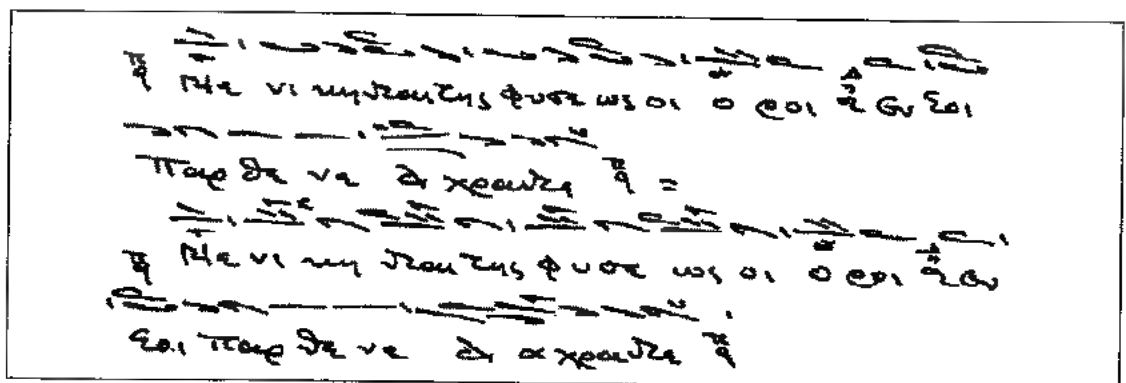 Νε νι κηνται της φυσε ως οι ο ροι εν σοι
Παρ θε νε α χραντε
Νε νι κην ται της φ υ σε ως οι ο ροι εν
σοι Παρ θε νε α α χραντε